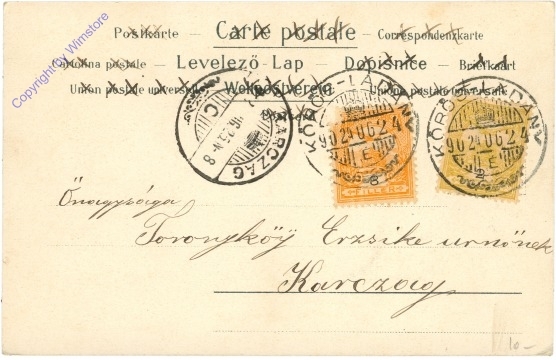 Postkarte Carte postale Correspondenzkarte
postale Levelező-Lap Dopisnice Briefkaart
Union postale universelle Weltpostverein Unione postale universale
Copyright by Wimstore
KARCZAG
KÖRÖS-LADÁNY
902
FILLÉR
8
KÖRÖS-LADÁNY
902
2
Őnagysága
Toronyköy Erzsike urnőnek
Karczag
10-